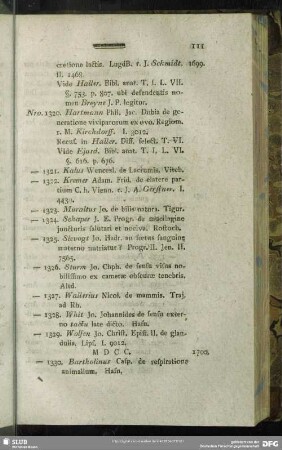 111
cretione lactis. LugdB. r. J. Schmidt. 1699.
II. 1468.
Vide Haller. Bibl. anat. T. I. L. VII.
§. 753. p. 807. ubi defendentis no-
men Breyne J. P. legitur.
Nro. 1320. Hartmann Phil. Jac. Dubia de ge-
neratione viviparorum ex ovo. Regiom.
r. M. Kirchdorff. I. 3012.
Recus. in Haller. Diss. select. T. VI.
Vide Ejusd. Bibl. anat. T. I. L. VI.
§. 616. p. 676.
— 1321. Kalus Wencesl. de Lacrumis. Viteb.
— 1322. Kremer Adam. Frid. de elatere par-
tium C. h. Vienn. r. J. A. Gerssner. I.
4430.
— 1323. Muraltus Jo. de bilis ortara. Tigur.
— 1324. Schaper J. E. Progr. de mucilagine
juncturis salutari et noriva. Rostoch.
— 1325. Slevogt Jo. Hadr. an foetus sanguine
materno nutriatur? Progr. II. Jen. II.
7565.
— 1326. Sturm Jo. Chph. de sensu visus no-
bilissimo ex camerae obscurae tenebris.
Altd.
— 1327. Walterius Nicol. de mammis. Traj.
ad Rh.
— 1328. Whit Jo. Johannides de sensu exter-
no tactu late dicto. Hafn.
— 1329. Wolfen Jo. Christ. Epist. II. de glan-
dulis. Lips. I. 9012.
M D C C. 1700.
— 1330. Bartholinus Casp. de respiratione
animalium. Hafn.
SLUB
DFG